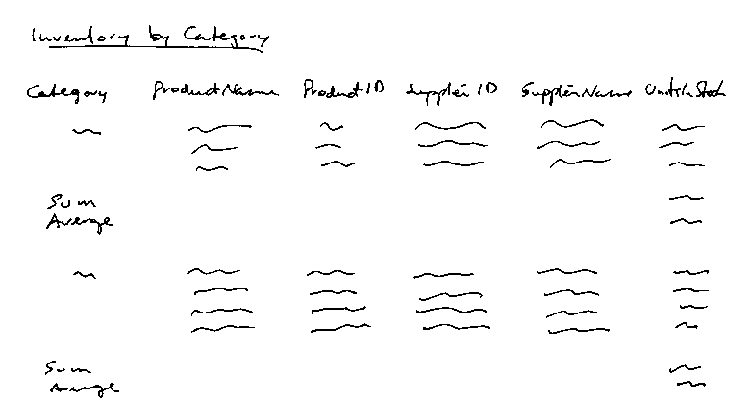 Inventory by Category
Category ProductName ProductID SupplierID SupplierName UnitsInStock
Sum
Average
Sum
Average